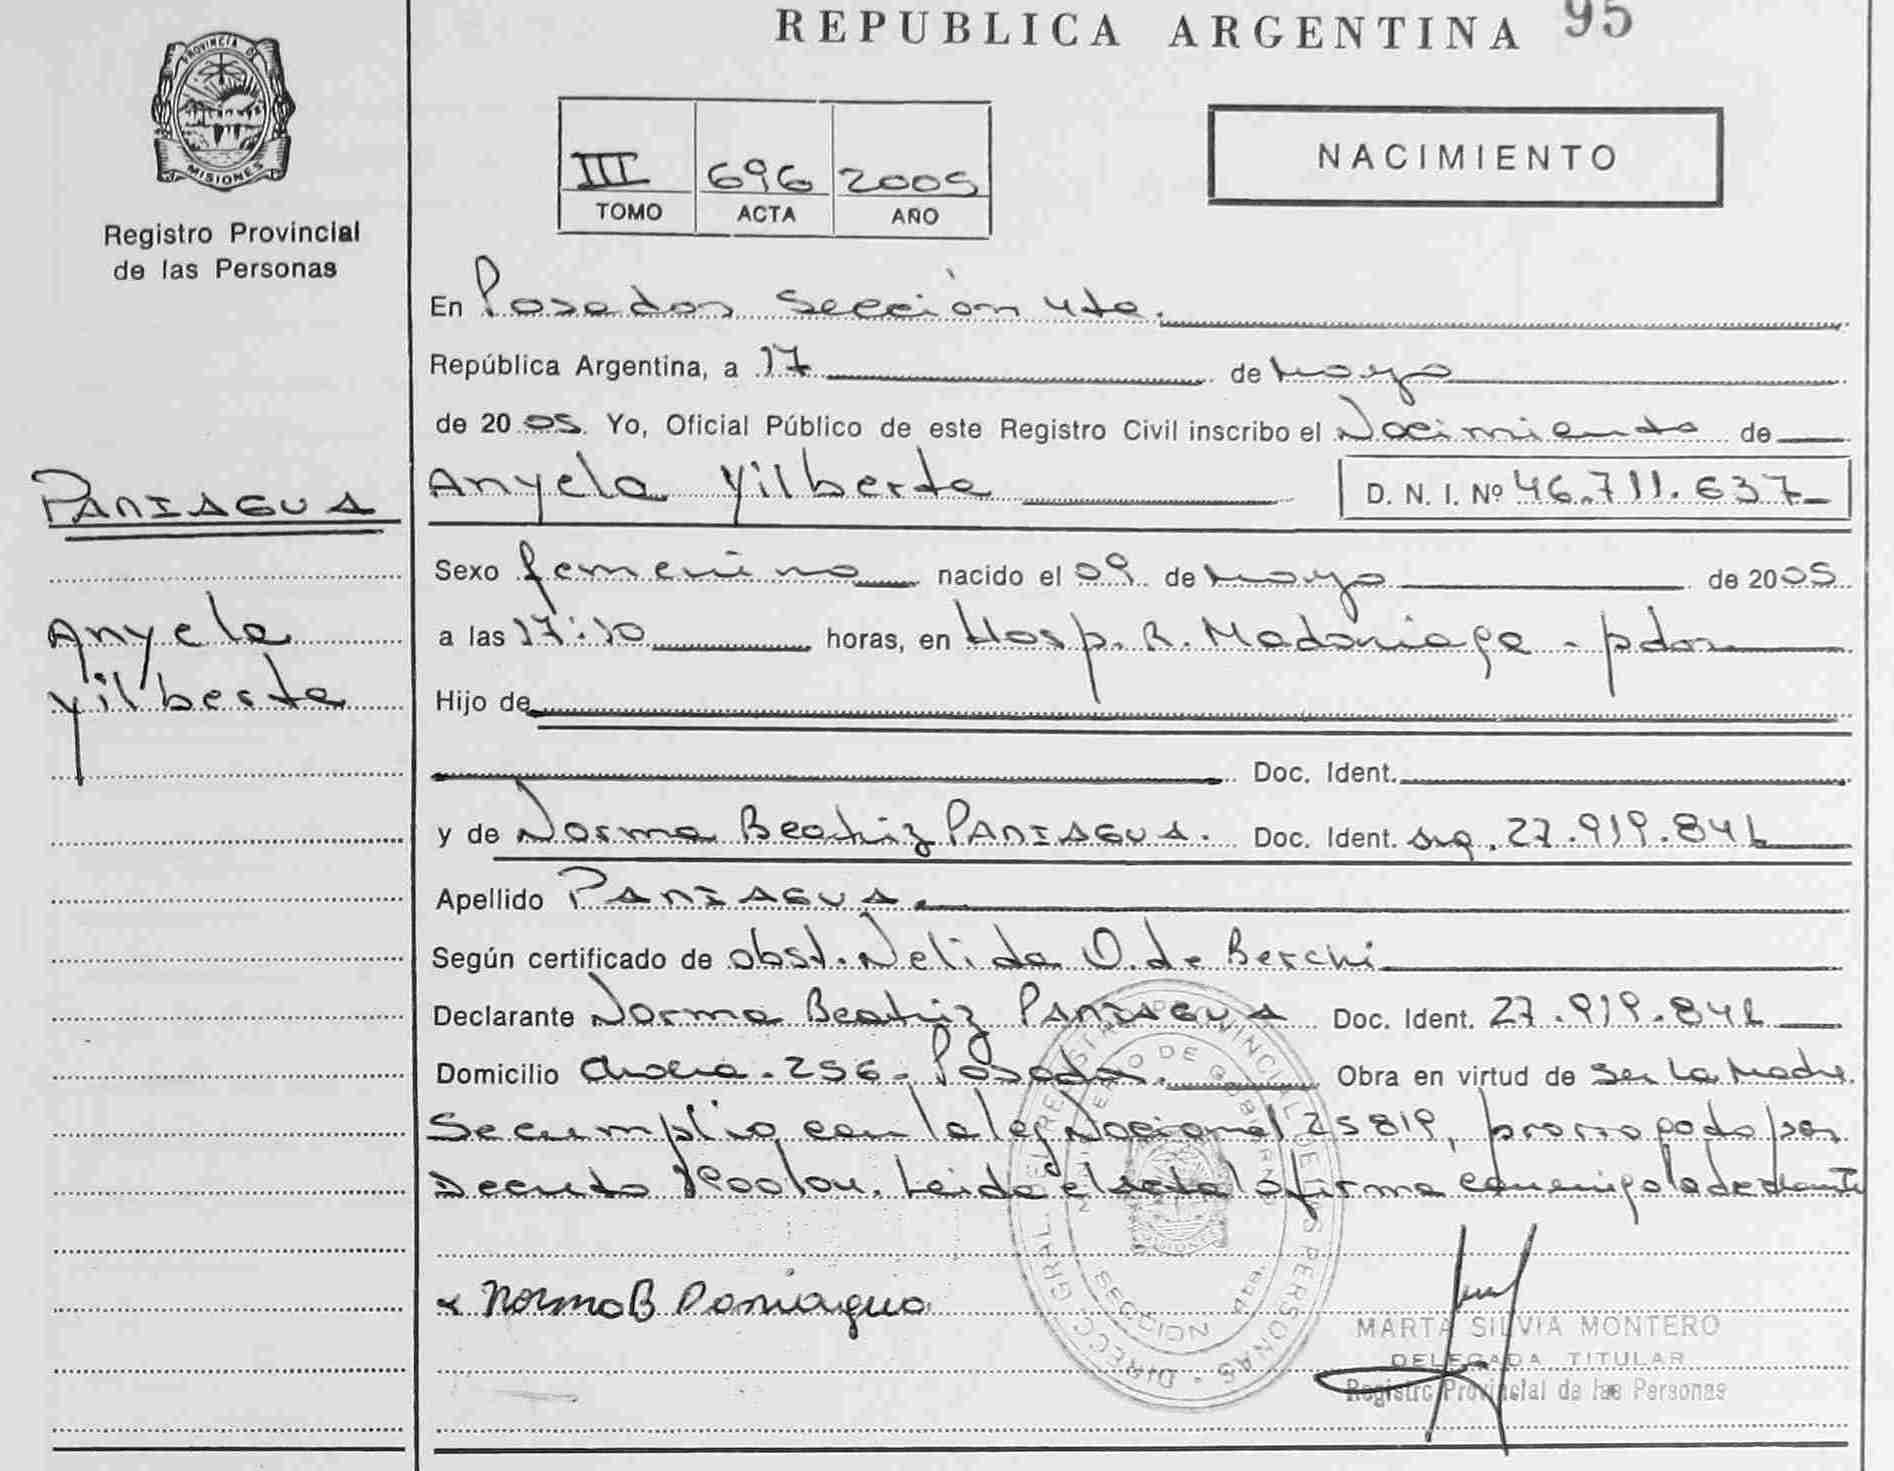 REPUBLICA ARGENTINA 95
PROVINCIA DE
MISIONES
Registro Provincial
de las Personas
III 696 2005
TOMO ACTA AÑO
NACIMIENTO
En Posadas Sección 4ta.
República Argentina, a 17 de Mayo
de 2005 Yo, Oficial Público de este Registro Civil inscribo el Nacimiento de
PANIAGUA
Anyela Yilberta D. N. I. Nº 46.711.637
Sexo femenino nacido el 09 de Mayo de 2005
Anyela
Yilberta
a las 17:10 horas, en Hosp. R. Madariaga - pdas
Hijo de
Doc. Ident.
y de Norma Beatriz PANIAGUA. Doc. Ident. arg. 27.919.841
Apellido PANIAGUA.
Según certificado de obst. Nelida O. de Berchi
Declarante Norma Beatriz PANIAGUA Doc. Ident. 27.919.841
Domicilio 256 - Posadas. Obra en virtud de ser La Madre.
Se cumplio con la ley Nacional 25819, prorrogado por
Decreto Leida el acta la firma conmigo la declarante
Norma B Paniagua
DIRECC. GRAL. DEL REGISTRO PROVINCIAL DE LAS PERSONAS
MINISTERIO DE GOBIERNO
SECCION 4ta.
MARTA SILVIA MONTERO
DELEGADA TITULAR
Registro Provincial de las Personas